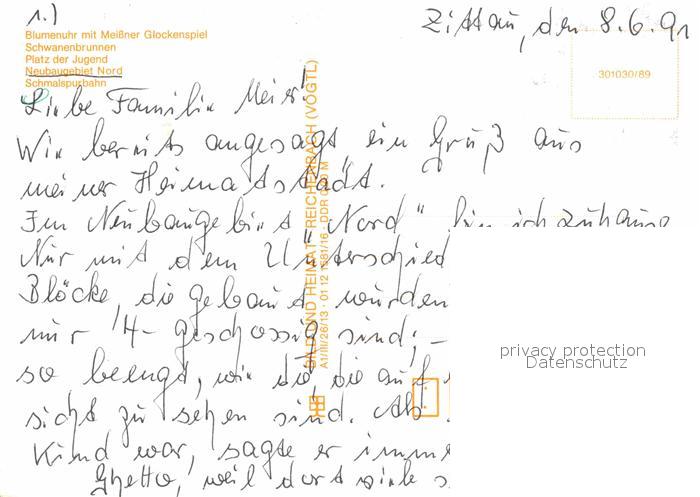 1.)
Zittau, den 8.6.91
Blumenuhr mit Meißner Glockenspiel
Schwanenbrunnen
Platz der Jugend
Neubaugebiet Nord
Schmalspurbahn
301030/89
Liebe Familie Meier!
Wie bereits angesagt ein Gruß aus
meiner Heimatstadt.
Im Neubaugebiet "Nord" bin ich zuhause
Nur mit dem Unterschied
Blöcke, die gebaut wurden
nur 4-geschossig sind; -
so beengt, wie die, die auf
sicht zu sehen sind. Als
Kind war, sagte er imme
Ghetto, weil dort viele s
BILD UND HEIMAT REICHENBACH (VOGTL)
A1/III/26/13 01 12 1381/16 DDR M
privacy protection
Datenschutz